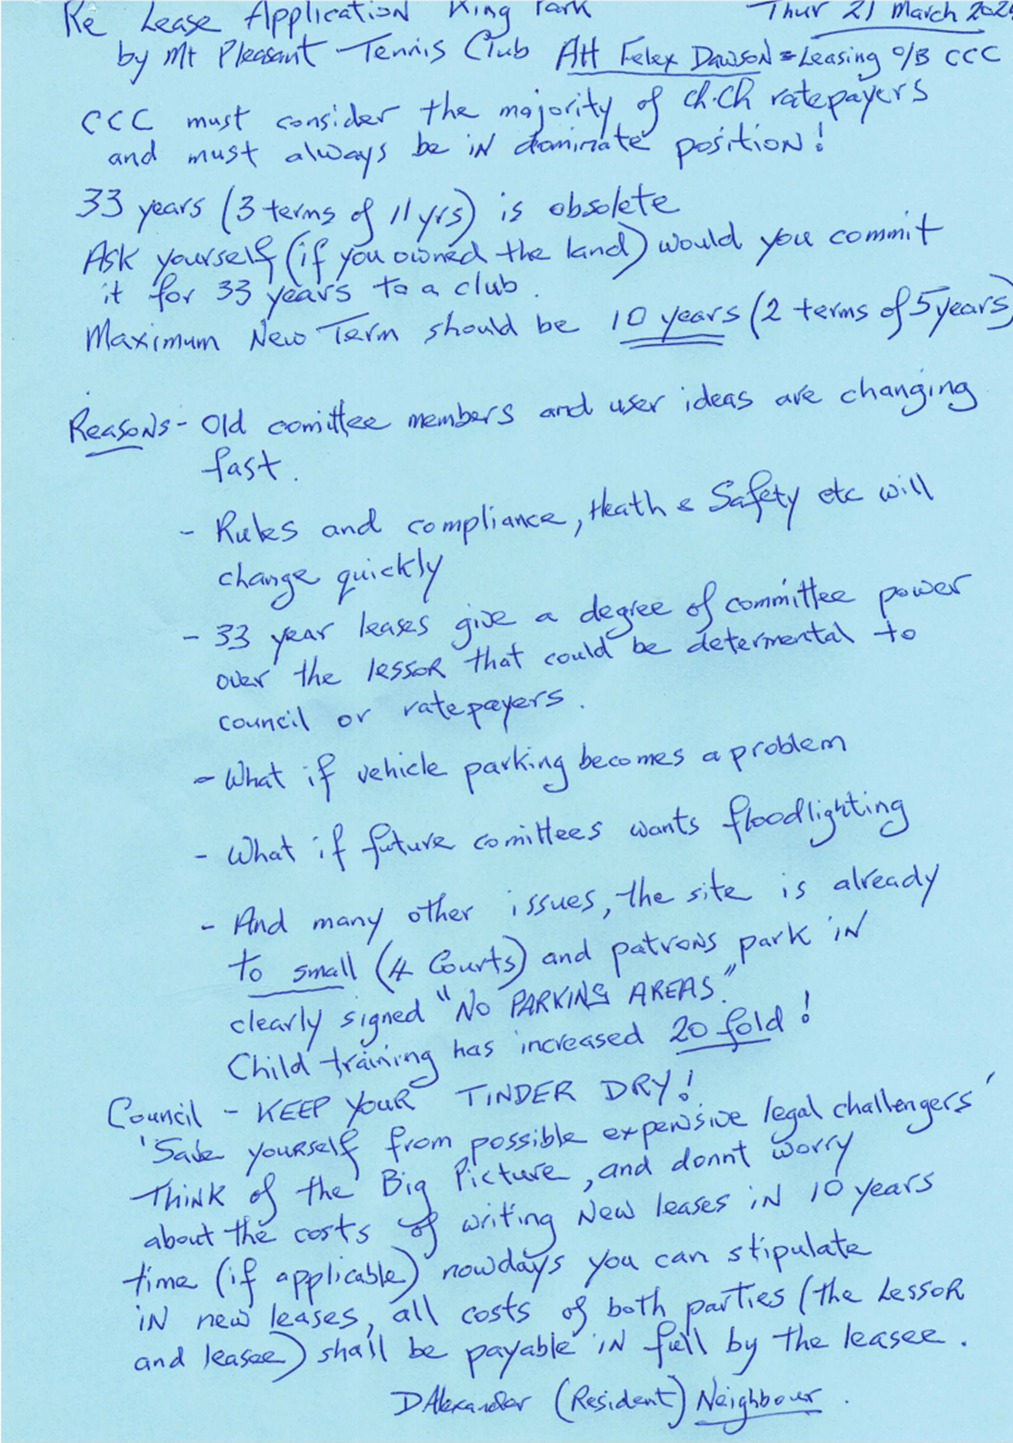 Re Lease Application King Park Thur 21 March 202
by Mt Pleasant Tennis Club Att Felex Dawson = Leasing O/B CCC
CCC must consider the majority of Ch.Ch ratepayers
and must always be in dominate position!
33 years (3 terms of 11 yrs) is obsolete
Ask yourself (if you owned the land) would you commit
it for 33 years to a club.
Maximum New Term should be 10 years (2 terms of 5 years)
Reasons - Old comittee members and user ideas are changing
fast.
- Rules and compliance, Heath & Safety etc will
change quickly
- 33 year leases give a degree of committee power
over the lessor that could be determental to
council or ratepayers.
- What if vehicle parking becomes a problem
- What if future comittees wants floodlighting
- And many other issues, the site is already
to small (4 Courts) and patrons park in
clearly signed "NO PARKING AREAS."
Child training has increased 20 fold!
Council - KEEP YOUR TINDER DRY!
'Save yourself from possible expensive legal challengers'
Think of the Big Picture, and donnt worry
about the costs of writing New leases in 10 years
time (if applicable) nowdays you can stipulate
in new leases, all costs of both parties (the Lessor
and leasee) shall be payable in full by the leasee.
DAlexander (Resident) Neighbour.